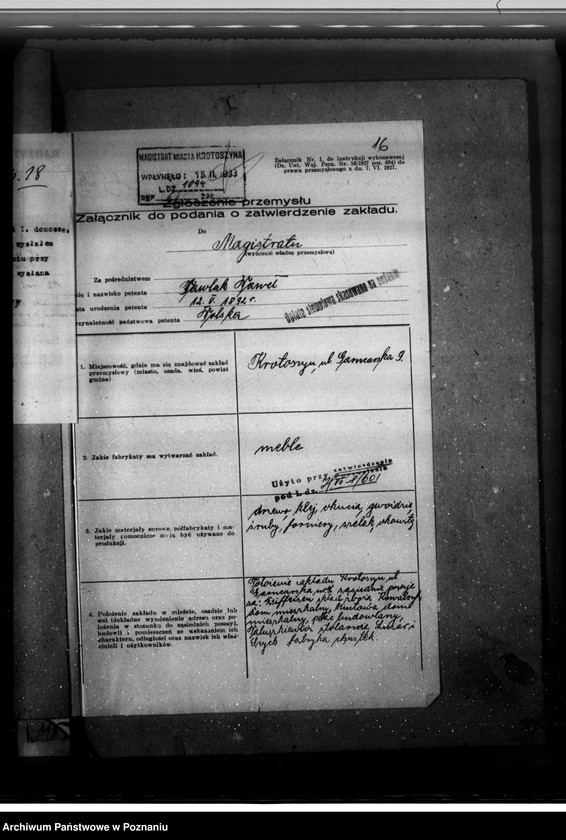 16
MAGISTRAT MIASTA KROTOSZYNA
WPŁYNĘŁO: 15 II. 1933
L.DZ. 1094
Załącznik Nr. 1. do instrukcji wykonawczej
(Dz. Ust. Woj. Pozn. Nr. 53/1927 poz. 694) do
prawa przemysłowego z dn. 7. VI. 1927.
Zgłoszenie przemysłu
Załącznik do podania o zatwierdzenie zakładu.
Do
Magistratu
(wymienić władzę przemysłową)
Za pośrednictwem
nazwisko petenta Pawlak Paweł
urodzenia petenta 12. V. 1892 r.
państwowa petenta Polska
Opłata stemplowa skasowana na podaniu
1. Miejscowość, gdzie ma się znajdować zakład
przemysłowy (miasto, osada, wieś, powiat
gmina)
Krotoszyn, ul. Gancarska 9.
2. Jakie fabrykaty ma wytwarzać zakład.
meble
Użyto przy zatwierdzeniu
pod l. dz.
3. Jakie materjały surowe, półfabrykaty i ma-
terjały pomocnicze mają być używane do
produkcji.
drzewo klej, okucia, gwoździe,
śruby, forniery, szelak,
4. Położenie zakładu w mieście, osadzie lub
wsi (dokładne wymienienie adresu oraz po-
łożenia w stosunku do sąsiednich posesyj,
budowli i pomieszczeń ze wskazaniem ich
charakteru, odległości oraz nazwisk ich właś-
cicieli i użytkowników.
Położenie zakładu Krotoszyn ul.
Gancarska sąsiednie posesje
są: skład zboża
dom mieszkalny,
mieszkalny,
stolarnia
fabryka
18
I. donoszę,
wysłałem
przy
wysłana
Archiwum Państwowe w Poznaniu